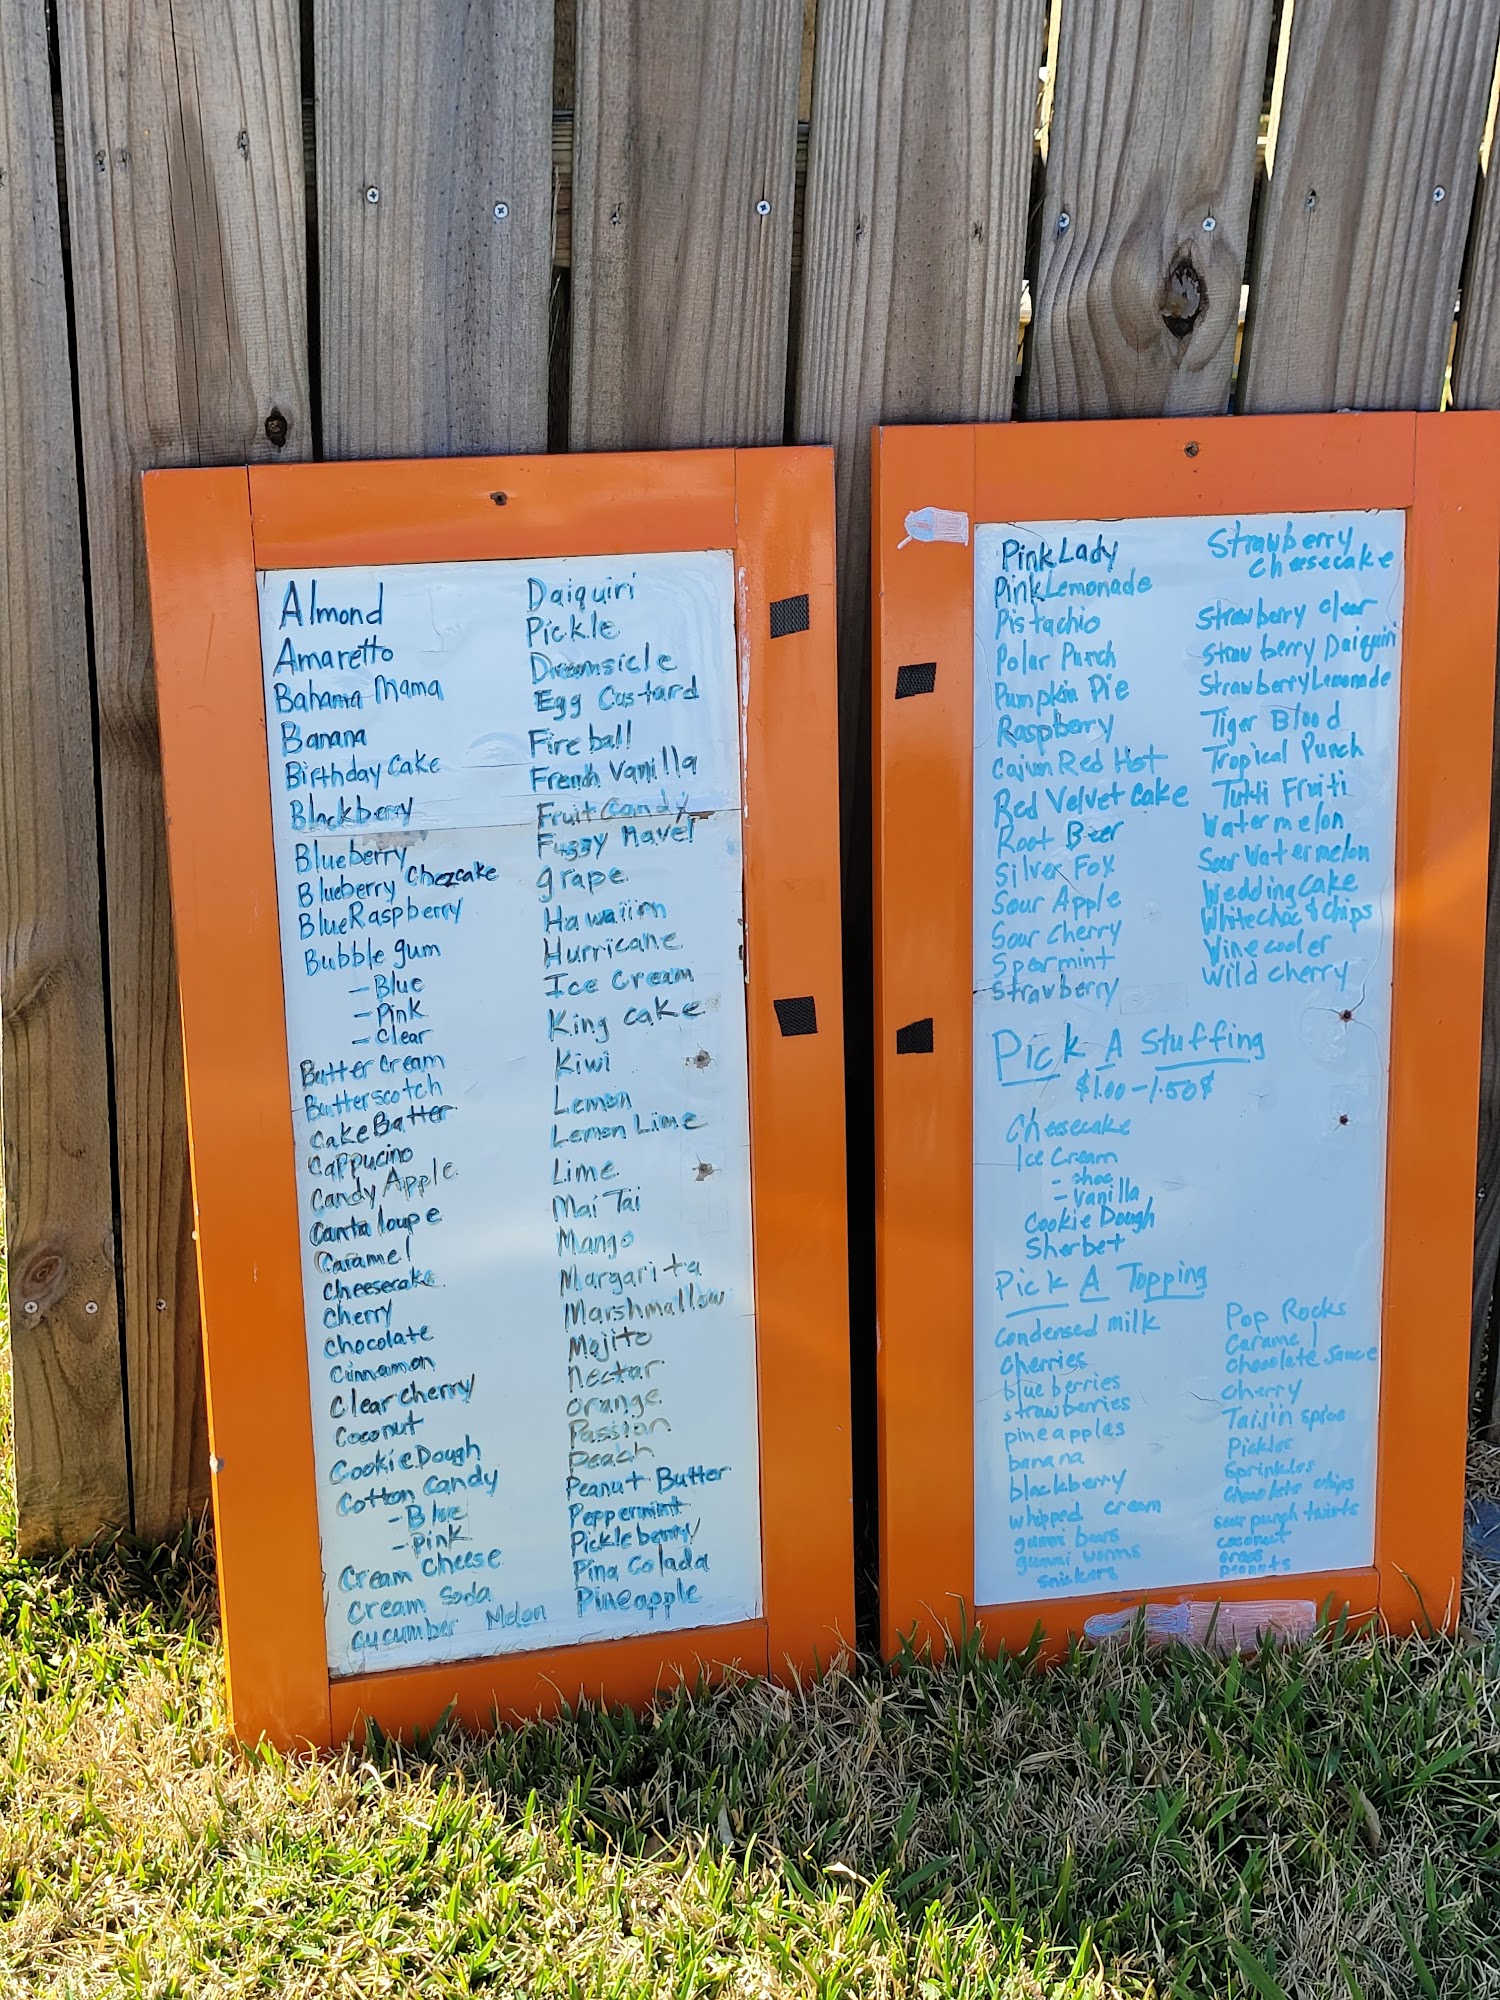 Almond
Amaretto
Bahama Mama
Banana
Birthday Cake
Blackberry
Blueberry
Blueberry Chezcake
Blue Raspberry
Bubble gum
- Blue
- Pink
- Clear
Butter Cream
Butterscotch
Cake Batter
Cappucino
Candy Apple
Cantaloupe
Caramel
Cheesecake
Cherry
Chocolate
Cinnamon
Clear Cherry
Coconut
Cookie Dough
Cotton Candy
- Blue
- Pink
Cream Cheese
Cream Soda
Cucumber Melon
Daiquiri
Pickle
Dreamsicle
Egg Custard
Fire ball
French Vanilla
Fruit Candy
Fuzzy Navel
grape
Hawaiim
Hurricane
Ice Cream
King cake
Kiwi
Lemon
Lemon Lime
Lime
Mai Tai
Mango
Margarita
Marshmallow
Mojito
Nectar
Orange
Passion
Peach
Peanut Butter
Peppermint
Pickleberry
Pina Colada
Pineapple
Pink Lady
Pink Lemonade
Pistachio
Polar Punch
Pumpkin Pie
Raspberry
Cajun Red Hot
Red Velvet Cake
Root Beer
Silver Fox
Sour Apple
Sour Cherry
Spearmint
Strawberry
Strawberry
Cheesecake
Strawberry Clear
Strawberry Daiquiri
Strawberry Lemonade
Tiger Blood
Tropical Punch
Tutti Fruiti
Watermelon
Sour Watermelon
Wedding Cake
White choc & chips
Wine cooler
Wild cherry
Pick A Stuffing
$1.00 - 1.50¢
Cheesecake
Ice Cream
- choc
- Vanilla
Cookie Dough
Sherbet
Pick A Topping
Condensed milk
Cherries
blueberries
strawberries
pineapples
banana
blackberry
whipped cream
gummi bears
gummi worms
snickers
Pop Rocks
Caramel
Chocolate Sauce
cherry
Taijin spice
Pickles
Sprinkles
Chocolate chips
sour punch twists
coconut
oreos
peanuts